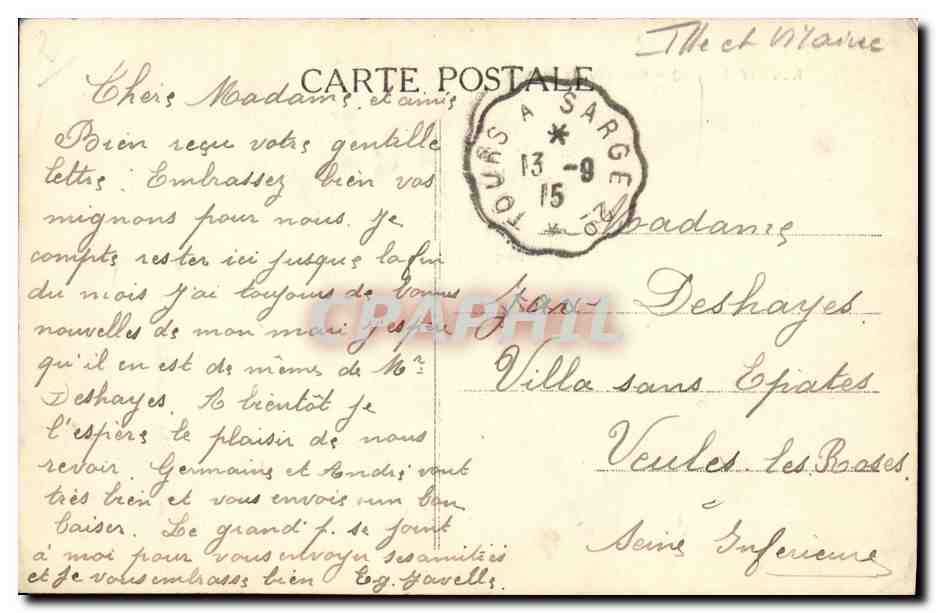 Ille et Vilaine
CARTE POSTALE
TOURS A SARGE 2º
13 -9
15
Chère Madame et amie
Bien reçu votre gentille
lettre. Embrassez bien vos
mignons pour nous. Je
compte rester ici jusque la fin
du mois J'ai toujours de bonnes
nouvelles de mon mari J'espère
qu'il en est de même de Mr
Deshayes. A bientôt je
l'espère le plaisir de vous
revoir. Germaine et André vont
très bien et vous envoie un bon
baiser. Le grand p. se joint
à moi pour vous envoyer ses amitiés
et je vous embrasse bien Eg. Javelle.
Madame
Deshayes
Villa sans Epates
Veules-les-Roses
Seine Inférieure
CPAPHIL